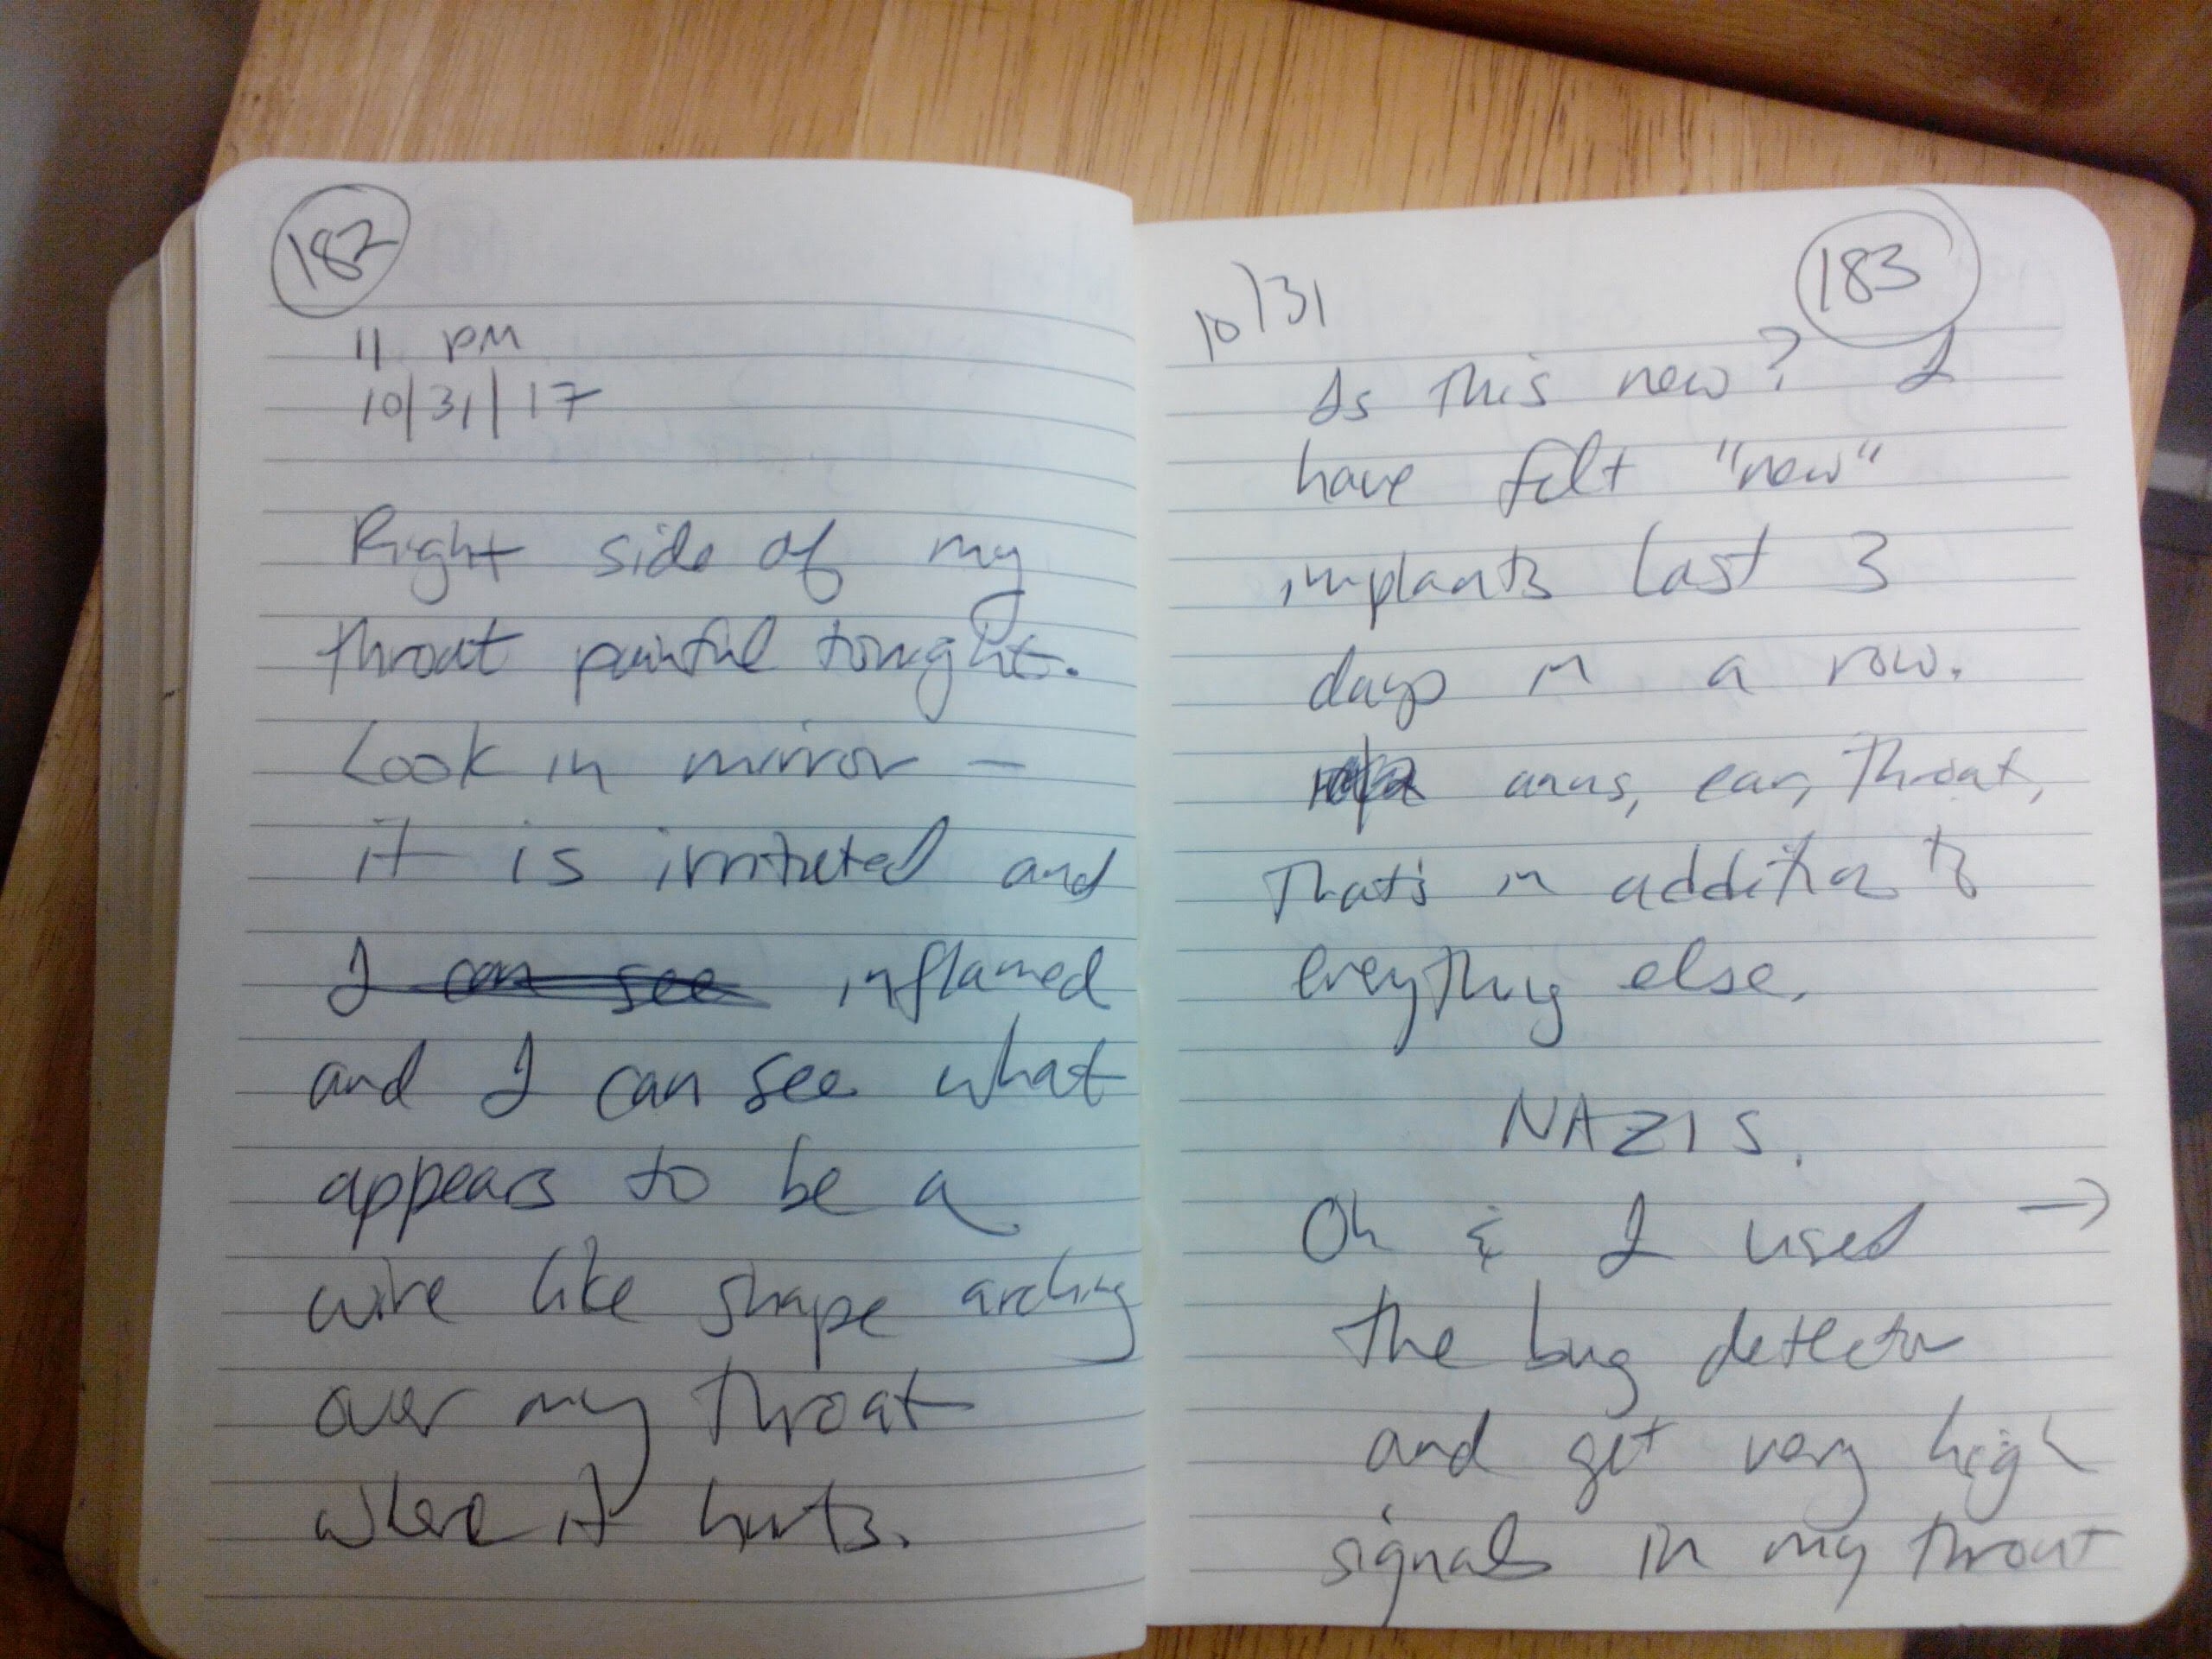 182
11 PM
10/31/17
Right side of my
throat painful tonight.
Look in mirror —
it is irritated and
I can see inflamed
and I can see what
appears to be a
wire like shape arching
over my throat
where it hurts.
183
10/31
Is this new? I
have felt "new"
implants last 3
days in a row.
anus, ear, throat,
That's in addition to
everything else.
NAZIS.
Oh & I used →
the bug detector
and get very high
signals in my throat